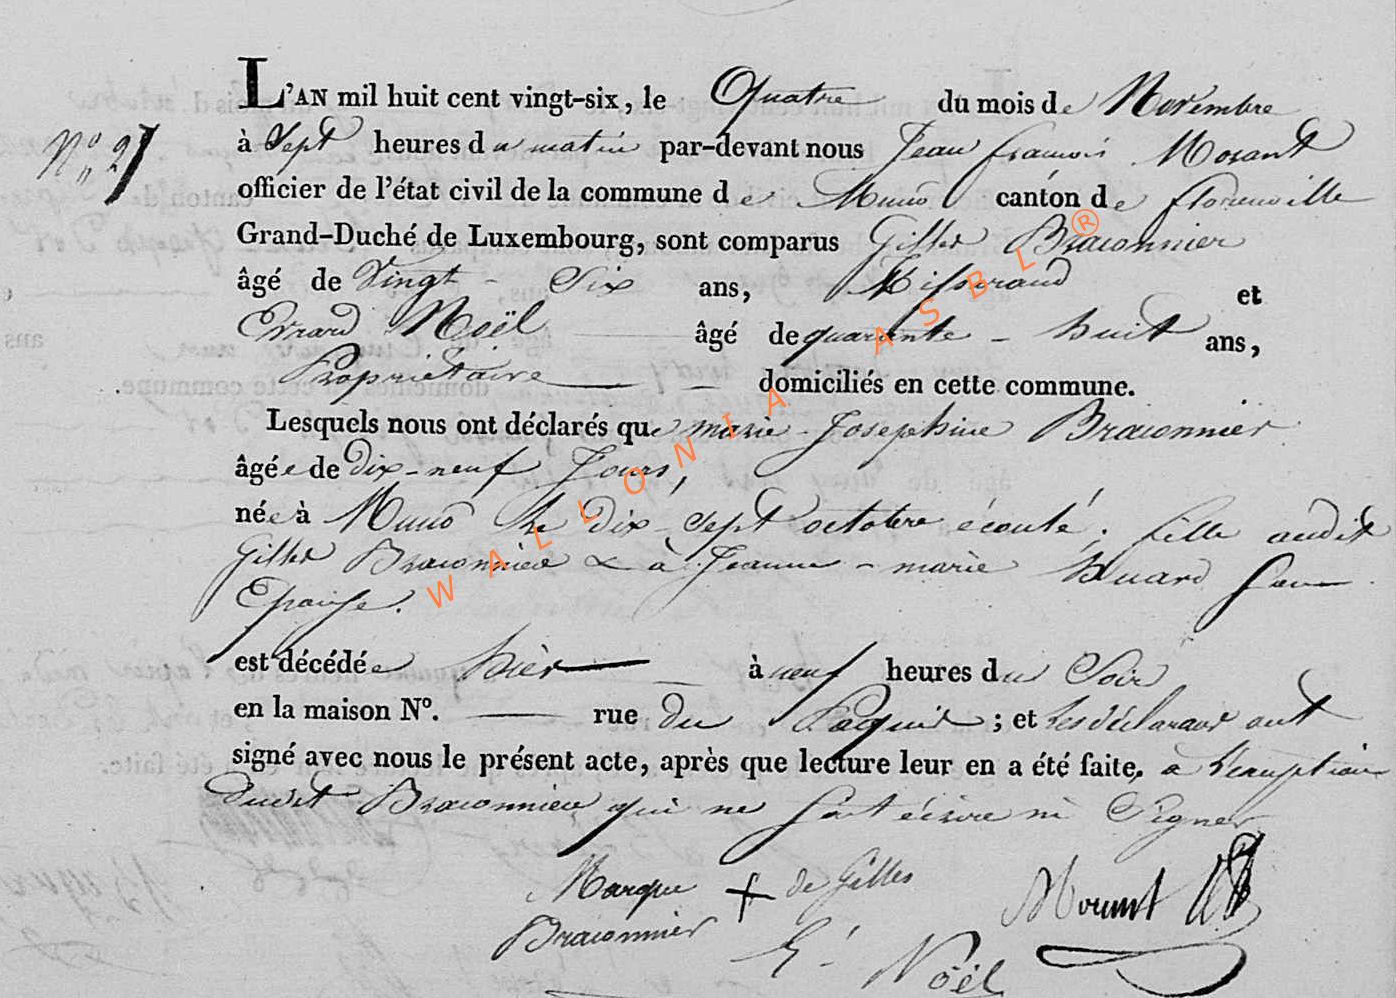 L'AN mil huit cent vingt-six, le Quatre du mois de Novembre
N° 27
à Sept heures du matin par-devant nous Jean françois Morant
officier de l'état civil de la commune de Muno canton de florenville
Grand-Duché de Luxembourg, sont comparus Gilles Braconnier
âgé de Vingt - Six ans, Tisserand et
Evrard Noël âgé de quarante - huit ans,
Propriétaire domiciliés en cette commune.
Lesquels nous ont déclarés que marie - Josephine Braconnier
âgée de dix-neuf Jours,
née à Muno le dix-sept octobre écoulé, fille audit
Gilles Braconnier & à Jeanne - marie Huard son
Epouse.
est décédée hier à neuf heures du Soir
en la maison N°. rue du Paquis ; et les déclarans ont
signé avec nous le présent acte, après que lecture leur en a été faite, à l'exception
dudit Braconnier qui ne sait écrire ni Signer
Marque + de Gilles
Braconnier
Morant
E. Noël
WALLONIA ASBL ®